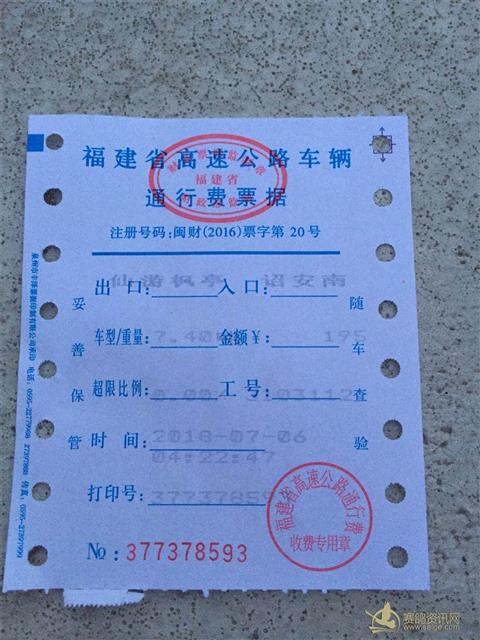 福建省高速公路车辆
通行费票据
福建省
注册号码:闽财(2016)票字第 20 号
仙游枫亭 诏安南
出口: 入口:
车型/重量: 7.40 金额¥: 195
超限比例: 0.00 工号: 3103112
时间: 2018-07-06
04:22:47
打印号: 377378593
№: 377378593
妥善保管
随车查验
福建省高速公路通行费
收费专用章
泉州市丰泽票据印制有限公司承印 电话: 0595-22779998 27397888 传真: 0595-27397999
赛鸽资讯网
www.saige.com